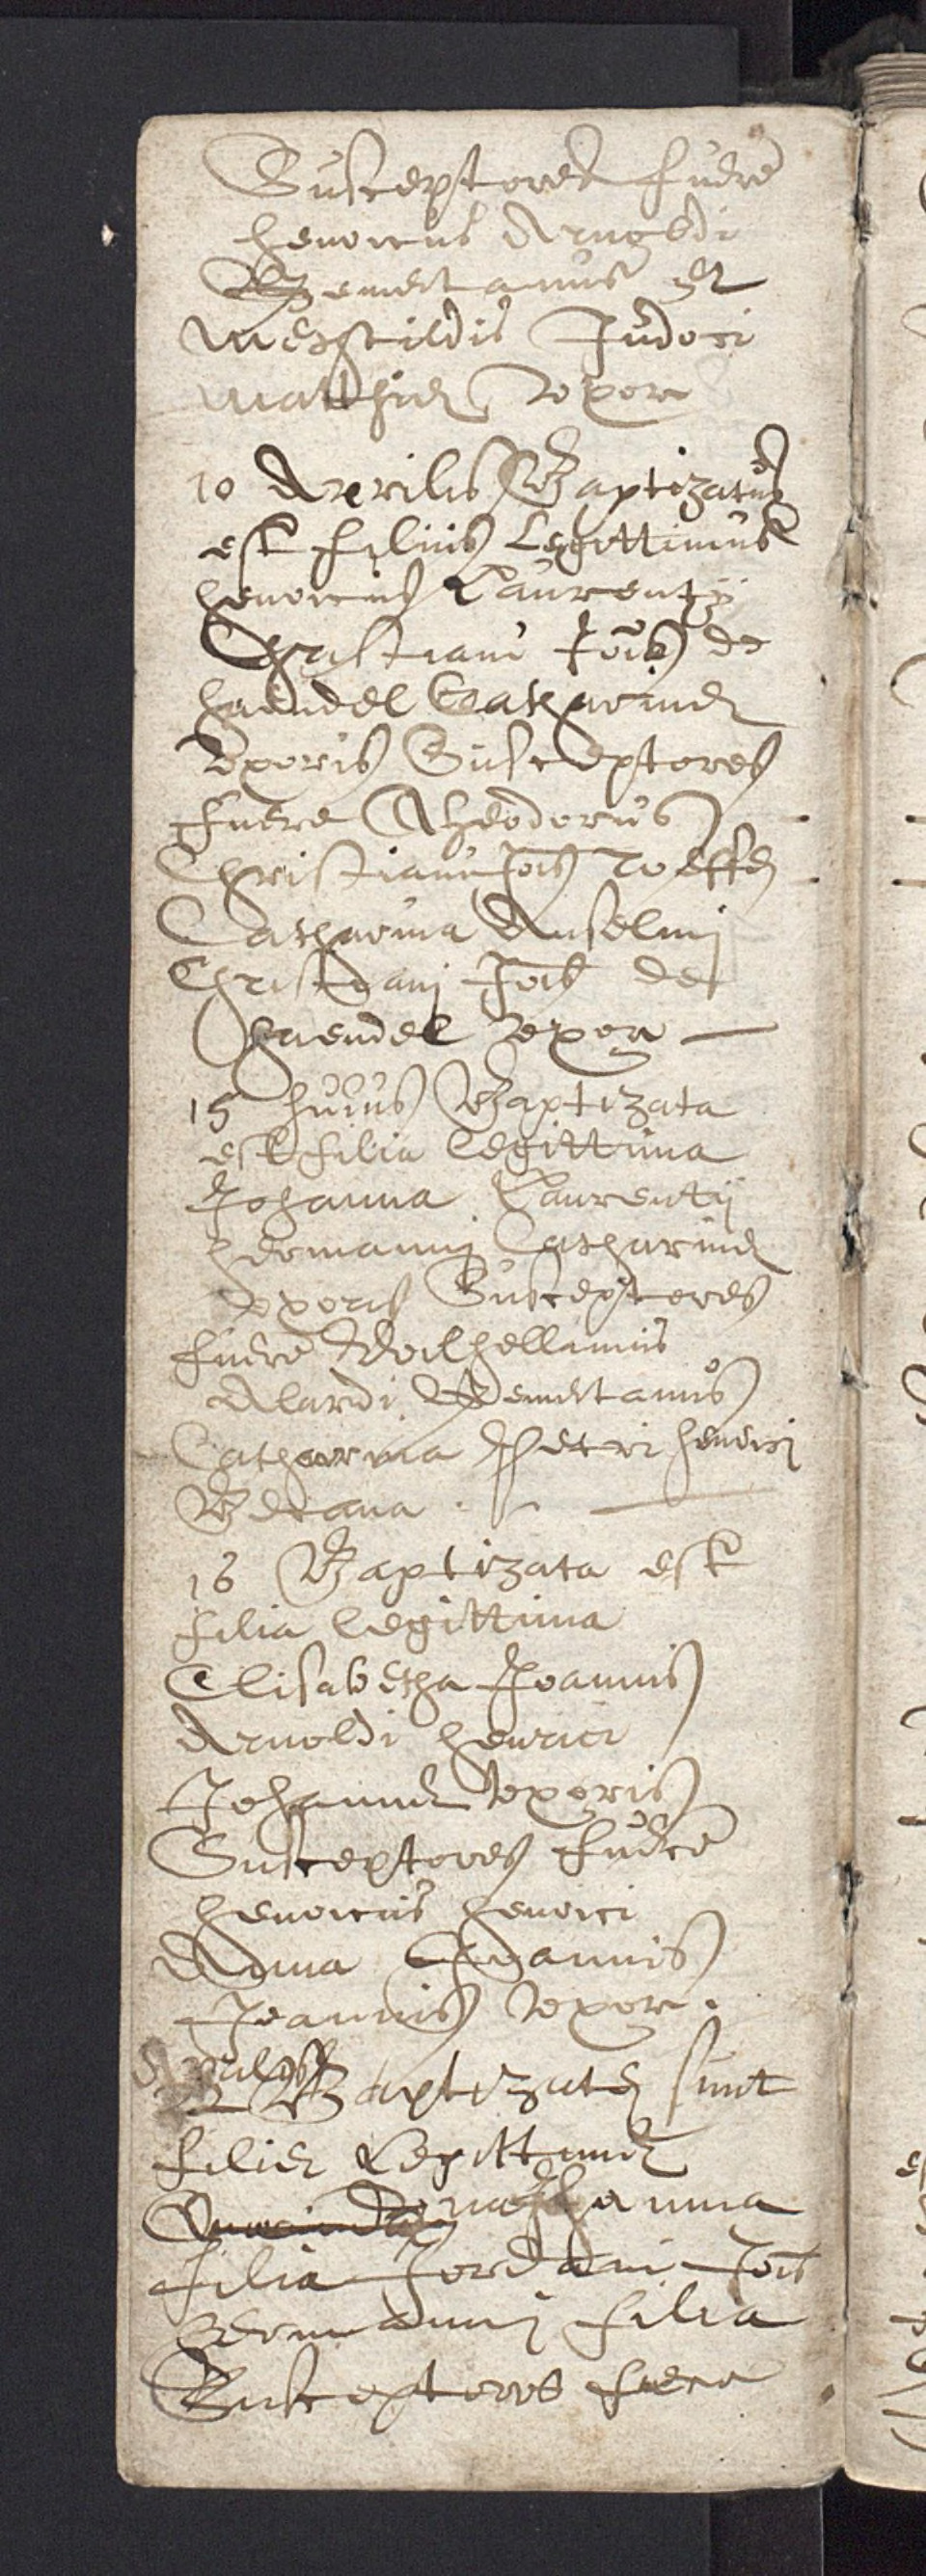 Susceptores fuere
Henricus Arnoldi
et
Mechtildis Judoci
Matthiæ uxor
10 Aprilis Baptizatus
est filius Legittimus
Henricus Laurentij
Christiani Jois de
Haendel Catharinæ
uxoris Susceptores
fuere Theodorus
Christiani Jois
Catharina Anselmj
Christianj Jois de
Haendel uxor
15 huius Baptizata
est filia legittima
Johanna Laurentij
Hermannj Catharinæ
uxoris Susceptores
fuere Wilhelmus
Alardi
Catharina Petri Henricj
16 Baptizata est
filia legittima
Elisabetha Joannis
Arnoldi Henrici
Johannæ uxoris
Susceptores fuere
Henricus Henrici
Anna Joannis
Joannis uxor.
Baptizatæ sunt
filiæ Legittimæ
filia Jordani Jois
Hermannj filia
Susceptores fuere